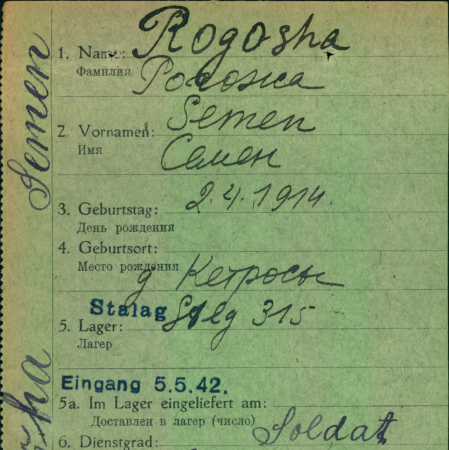 1. Name: Rogosha
Фамилия Рогожа
2. Vornamen: Semen
Имя Семен
3. Geburtstag: 2.4.1914.
День рождения
4. Geburtsort:
Место рождения д Кетросы
Stalag
5. Lager: Stlg 315
Лагер
Eingang 5.5.42.
5a. Im Lager eingeliefert am:
Доставлен в лагер (число)
6. Dienstgrad: Soldat
Semen